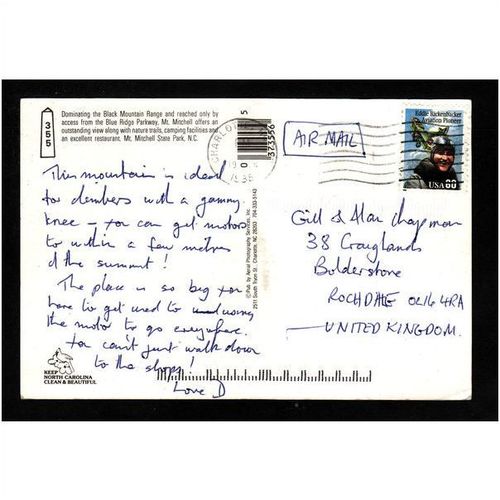 355
Dominating the Black Mountain Range and reached only by
access from the Blue Ridge Parkway, Mt. Mitchell offers an
outstanding view along with nature trails, camping facilities and
an excellent restaurant. Mt. Mitchell State Park, N.C.
This mountain is ideal
for climbers with a gammy
knee – you can get motor
to within a few metres
of the summit!
The place is so big you
have to get used to using
the motor to go everywhere.
You can't just walk down
to the shops!
Love D
KEEP
NORTH CAROLINA
CLEAN & BEAUTIFUL
© Pub. by Aerial Photography Services, Inc.
2511 South Tryon St., Charlotte, NC 28203 704-333-5143
5
373556
CHARLO
AIR MAIL
Eddie Rickenbacker
Aviation Pioneer
USA 60
Gill & Alan Chapman
38 Craiglands
Bolderstone
ROCHDALE OL16 4RA
UNITED KINGDOM.